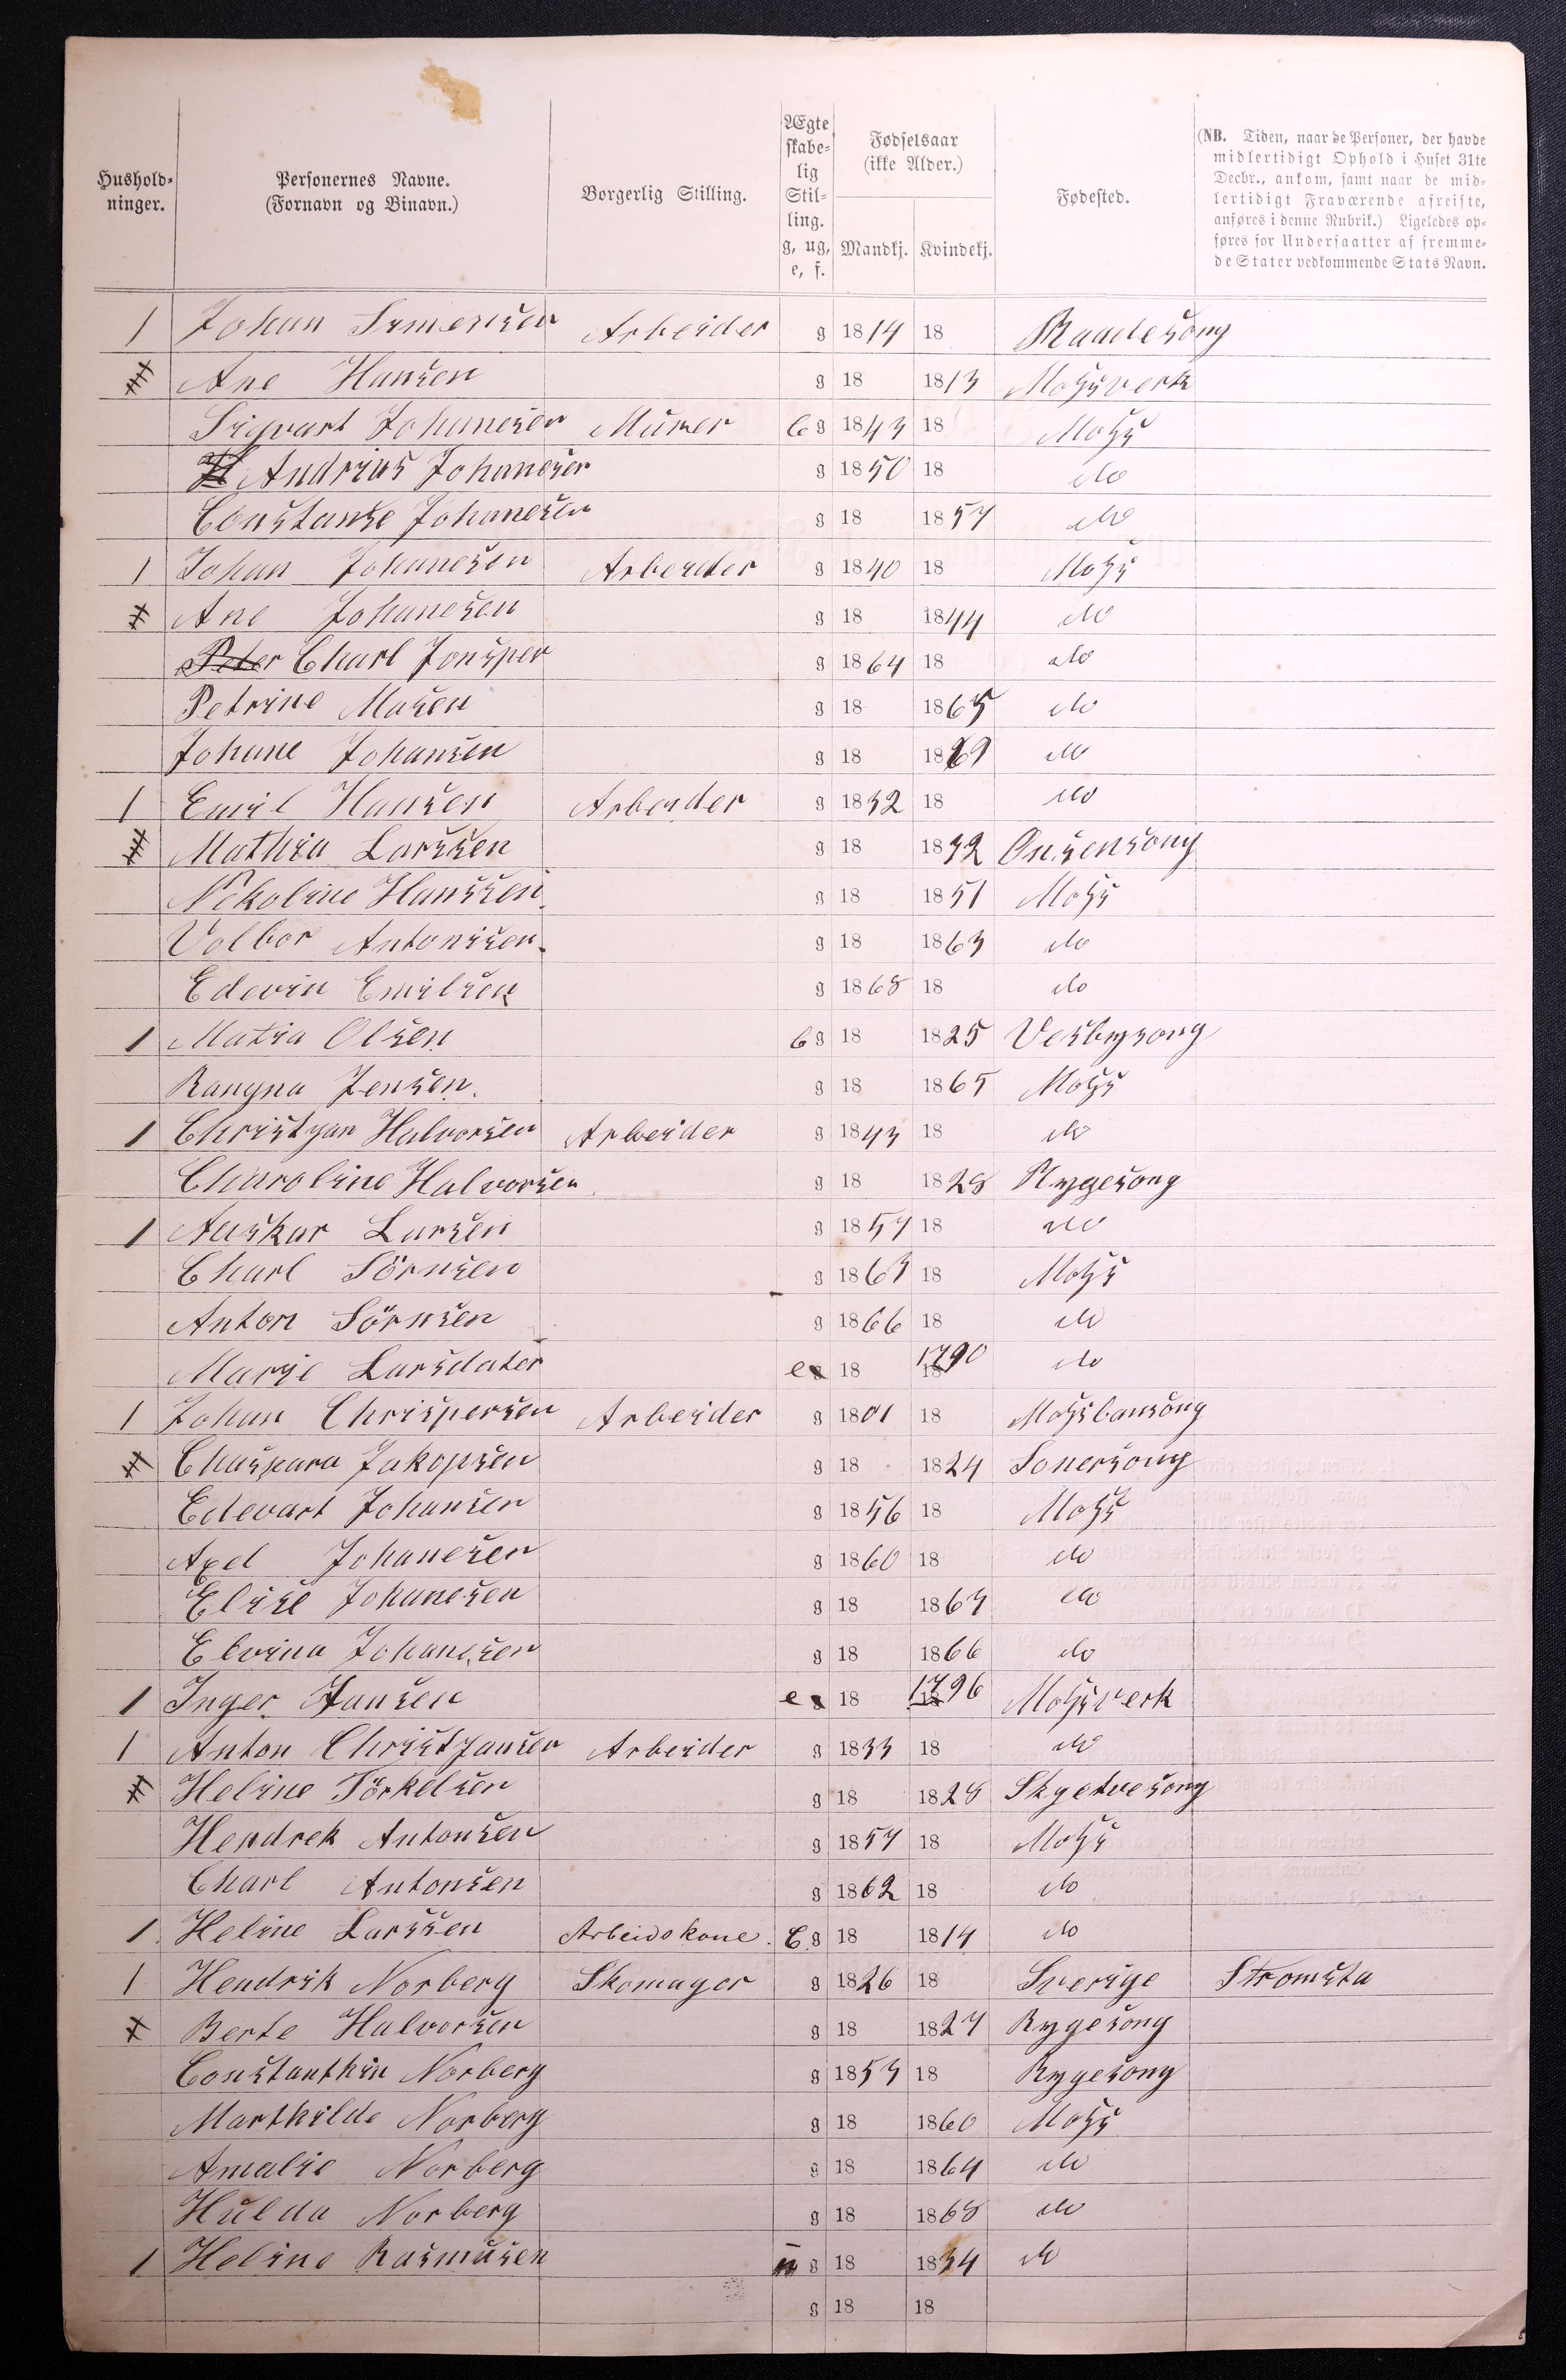 Hushold-
ninger.
Personernes Navne.
(Fornavn og Binavn.)
Borgerlig Stilling.
Ægte
skabe-
lig
Stil-
ling.
g, ug,
e, f.
Fødselsaar
(ikke Alder.)
Mandkj. Kvindekj.
Fødested.
(NB. Tiden, naar de Personer, der havde
midlertidigt Ophold i Huset 31te
Decbr., ankom, samt naar de mid-
lertidigt Fraværende afreiste,
anføres i denne Rubrik.) Ligeledes op-
føres for Undersaatter af fremme-
de Stater vedkommende Stats Navn.
1 Johan Arbeider g 1814 18 Raadesong
Ane Hansen g 18 1813 Mossverk
Sigvart Johanesen Murer g 1843 18 Moss
Andrius Johanesen g 1850 18 do
Constanse Johanesen g 18 1857 do
1 Johan Johanesen Arbeider g 1840 18 Moss
Ane Johanesen g 18 1844 do
Peter Charl Jonsper g 1864 18 do
Petrine Masen g 18 1865 do
Johane Johansen g 18 1869 do
1 Emil Hansen Arbeider g 1832 18 do
Mathia Larssen g 18 1832 Onsensong
Nekoline Hanssen g 18 1851 Moss
Volbor Antonisen g 18 1863 do
Edevin Emilsen g 1868 18 do
1 Matia Olsen g 18 1825 Vesbysong
Rangna Jensen. g 18 1865 Moss
1 Christyan Halvorsen Arbeider g 1843 18 do
Charoline Halvorsen g 18 1828 Rygesong
1 Auskar Larsen g 1857 18 do
Charl Sörnsen g 1863 18 Moss
Anton Sörnsen g 1866 18 do
Marje Larsdater e 18 1790 do
1 Johan Chrispersen Arbeider g 1801 18
Chaspara Jakopsen g 18 1824 Sonersong
Edevart Johansen g 1856 18 Moss
Axel Johanesen g 1860 18 do
Elise Johanesen g 18 1863 do
Elvina Johanesen g 18 1866 do
1 Inger Hansen e 18 1796 Mossverk
1 Anton Christjansen Arbeider g 1833 18 do
Heline Törkelsen g 18 1828 Skyetvesong
Hendrek Antonsen g 1857 18 Moss
Charl Antonsen g 1862 18 do
1. Heline Larssen Arbeidskone. g 18 1814 do
1 Hendrik Norberg Skomager g 1826 18 Sverige Stromsta
Berte Halvorsen g 18 1827 Rygesong
Constanthin Norberg g 1853 18 Rygesong
Marthilde Norberg g 18 1860 Moss
Amalie Norberg g 18 1864 do
Hulda Norberg g 18 1868 do
1 Heline Rasmusen g 18 1834 do
g 18 18